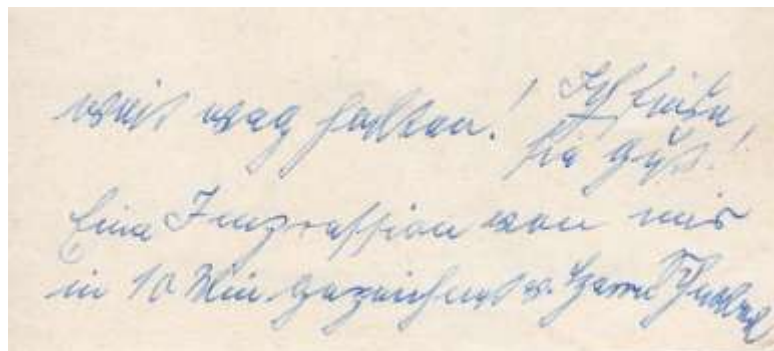 weit weg halten! Ich finde
sie gut!
Eine Impression von mir
in 10 Min gezeichnet v. Herrn